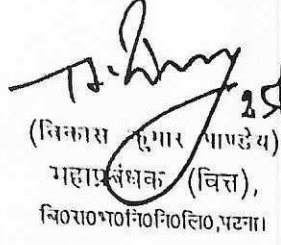 25
(विकास कुमार पाण्डेय)
महाप्रबंधक (वित्त),
बि०रा०भ०नि०नि०लि०,पटना।